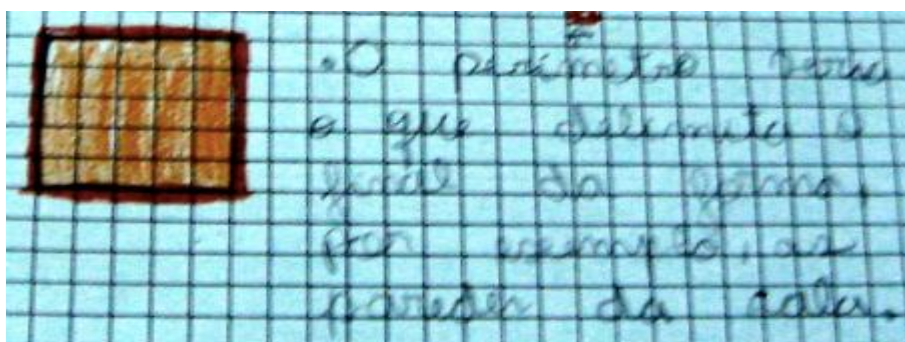 . O perímetro seria
o que delimita o
final da forma,
por exemplo, as
paredes da sala.